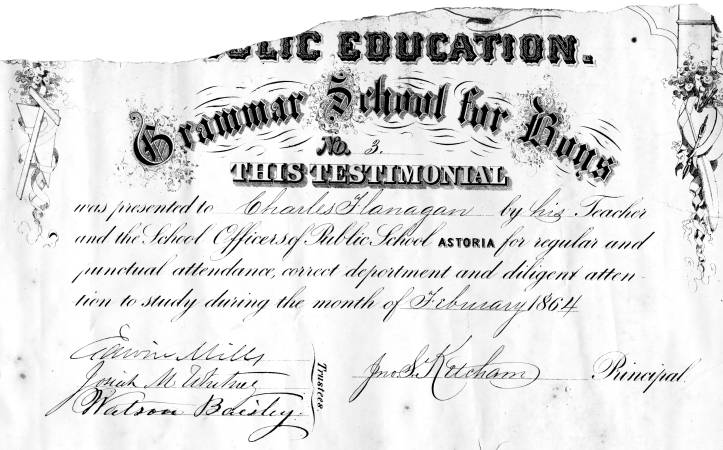 LIC EDUCATION.
Grammar School for Boys
No. 3.
THIS TESTIMONIAL
was presented to Charles Flanagan by his Teacher
and the School Officers of Public School ASTORIA for regular and
punctual attendance, correct deportment and diligent atten-
tion to study during the month of February 1864
Edwin Mills
Josiah M Whitney
Watson Baisley
Trustees
Jno. S. Ketcham Principal.